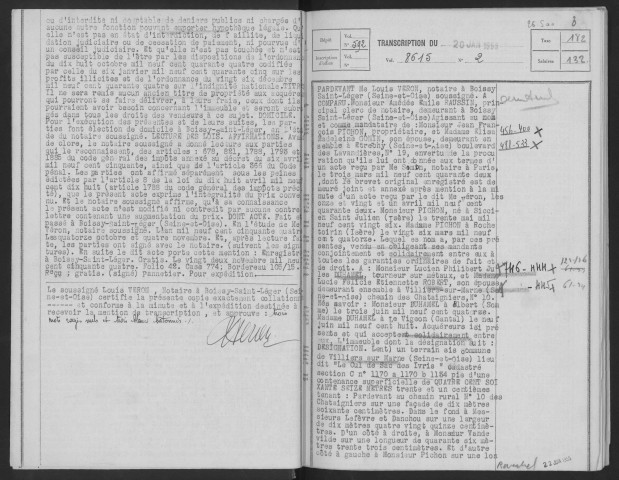 ou d'interdits ni comptable de deniers publics ni chargés d'
aucune autre fonction pouvant emporter hypothèque légale. Qu'
elle n'est pas en état d'interdiction, de faillite, de liqui
dation judiciaire ou de cessation de paiement, ni pourvue d'
un conseil judiciaire. Et qu'elle n'est pas touchée et n'est
pas susceptible de l'être par les dispositions de l'ordonnance
du dix huit octobre mil neuf cent quarante quatre modifiée
par celle du six janvier mil neuf cent quarante cinq sur les
profits illicites et de l'ordonnance du vingt six décembre
mil neuf cent quarante quatre sur l'indignité nationale. TITRES
Il ne sera remis aucun ancien titre de propriété aux acquéreurs
qui pourront se faire délivrer, à leurs frais, ceux dont ils
pourraient avoir besoin concernant l'immeuble et seront subro
gés dans tous les droits des vendeurs à ce sujet. DOMICILE.
Pour l'exécution des présentes et de leurs suites, les par
ties font élection de domicile à Boissy-Saint-Léger, en l'étu
de du notaire soussigné. LECTURE DES LOIS. AFFIRMATIONS. Avant
de clore, le notaire soussigné a donné lecture aux parties
qui le reconnaissent, des articles : 678, 681, 1786, 1788 et
1835 du code général des impôts annexé au décret du six avril
mil neuf cent cinquante, ainsi que de l'article 366 du Code
pénal. Les parties ont affirmé séparément sous les peines
édictées par l'article 8 de la loi du dix huit avril mil neuf
cent dix huit (article 1788 du code général des impôts préci
té), que le présent acte exprime l'intégralité du prix conve
nu. Et le notaire soussigné affirme, qu'à sa connaissance
le présent acte n'est modifié ni contredit par aucune contre
lettre contenant une augmentation du prix. DONT ACTE. Fait et
passé à Boissy-Saint-Léger (Seine-et-Oise). En l'étude de Me
Veron, notaire soussigné. L'an mil neuf cent cinquante quatre
Les quatorze octobre et quatre novembre. Et, après lecture fai
te, les parties ont signé avec le notaire. (Suivent les signa
tures). En suite se dit acte porte cette mention : Enregistré
à Boissy-Saint-Léger. Gratis. Le vingt deux novembre mil neuf
cent cinquante quatre. Folio 48. Case 774. Bordereau 105/15.
Reçu : gratis. (signé) Pannavier. Pour expédition.
Le soussigné Louis VERON, Notaire à Boissy-Saint-Léger (Sei
ne-et-Oise) certifie la présente copie exactement collationnée
et conforme à la minute et à l'expédition destinée à
recevoir la mention de transcription, et approuve :
Veron
Dépôt
Vol.
N° 592
Inscription d'office
Vol.
N°
TRANSCRIPTION DU 20 JAN 1955
Vol. 8615 N° 2
Taxe 132
Salaires 132
PARDEVANT Me Louis VERON, notaire à Boissy
Saint-Léger (Seine-et-Oise) soussigné. A
COMPARU. Monsieur Amédée Emile RAUSSIN, prin
cipal clerc de notaire, demeurant à Boissy
Saint-Léger (Seine-et-Oise) Agissant au nom
et comme mandataire de : Monsieur Jean Fran
çois PICHON, propriétaire, et Madame Elisa
Madeleine COSTE, son épouse, demeurant en
semble à Etrechy (Seine-et-Oise) boulevard
des Lavandières, N° 19, en vertu de la procu
ration qu'ils lui ont donnée aux termes d'
un acte reçu par Me Senan, notaire à Paris,
le trois mars mil neuf cent quarante deux,
dont le brevet original enregistré est de
meuré joint et annexé après mention à la mi
nute d'un acte reçu par le dit Me Veron, les
onze et vingt et un avril mil neuf cent
quarante deux. Monsieur PICHON, né à Bicci
en Saint Julien (Isère) le trente mai mil
neuf cent vingt six. Madame PICHON à Roche
toirin (Isère) le vingt six mars mil neuf
cent quatorze. Lequel es nom a, par ces pré
sentes, vendu en obligeant ses mandants
conjointement et solidairement entre eux à
toutes les garanties ordinaires de fait et
de droit. A : Monsieur Lucien Philibert Ju
les DUHAMEL, tourneur sur métaux, et Madame
Lucie Félicie Etiennette ROBERT, son épouse
demeurant ensemble à Villiers-sur-Marne (Sei
ne-et-Oise) chemin des Chataigniers, N° 10.
Nés savoir : Monsieur DUHAMEL à Albert (Som
me) le trois juin mil neuf cent quatre.
Madame DUHAMEL à Le Vigean (Cantal) le neuf
juin mil neuf cent huit. Acquéreurs ici pré
sents et qui acceptent solidairement entre
eux. L'immeuble dont la désignation suit :
DESIGNATION. (ent) Un terrain sis commune
de Villiers sur Marne (Seine-et-Oise) lieu
dit " Le Cul de Sac des Ivris " cadastré
section C n° 1170 à 1170 b 1184 pie d'une
contenance superficielle de QUATRE CENT SOI
XANTE SEIZE METRES trente et un centièmes
tenant : Pardevant au chemin rural N° 10 des
Chataigniers sur une façade de dix mètres
soixante centimètres. Dans le fond à Mes
sieurs Lefèvre et Danchou sur une largeur
de dix mètres quatre vingt quinze centimè
tres. D'un côté à droite, à Monsieur Vande
vilde sur une longueur de quarante six mè
tres trente trois centimètres. Et d'autre
côté à gauche à Monsieur Pichon sur une lon